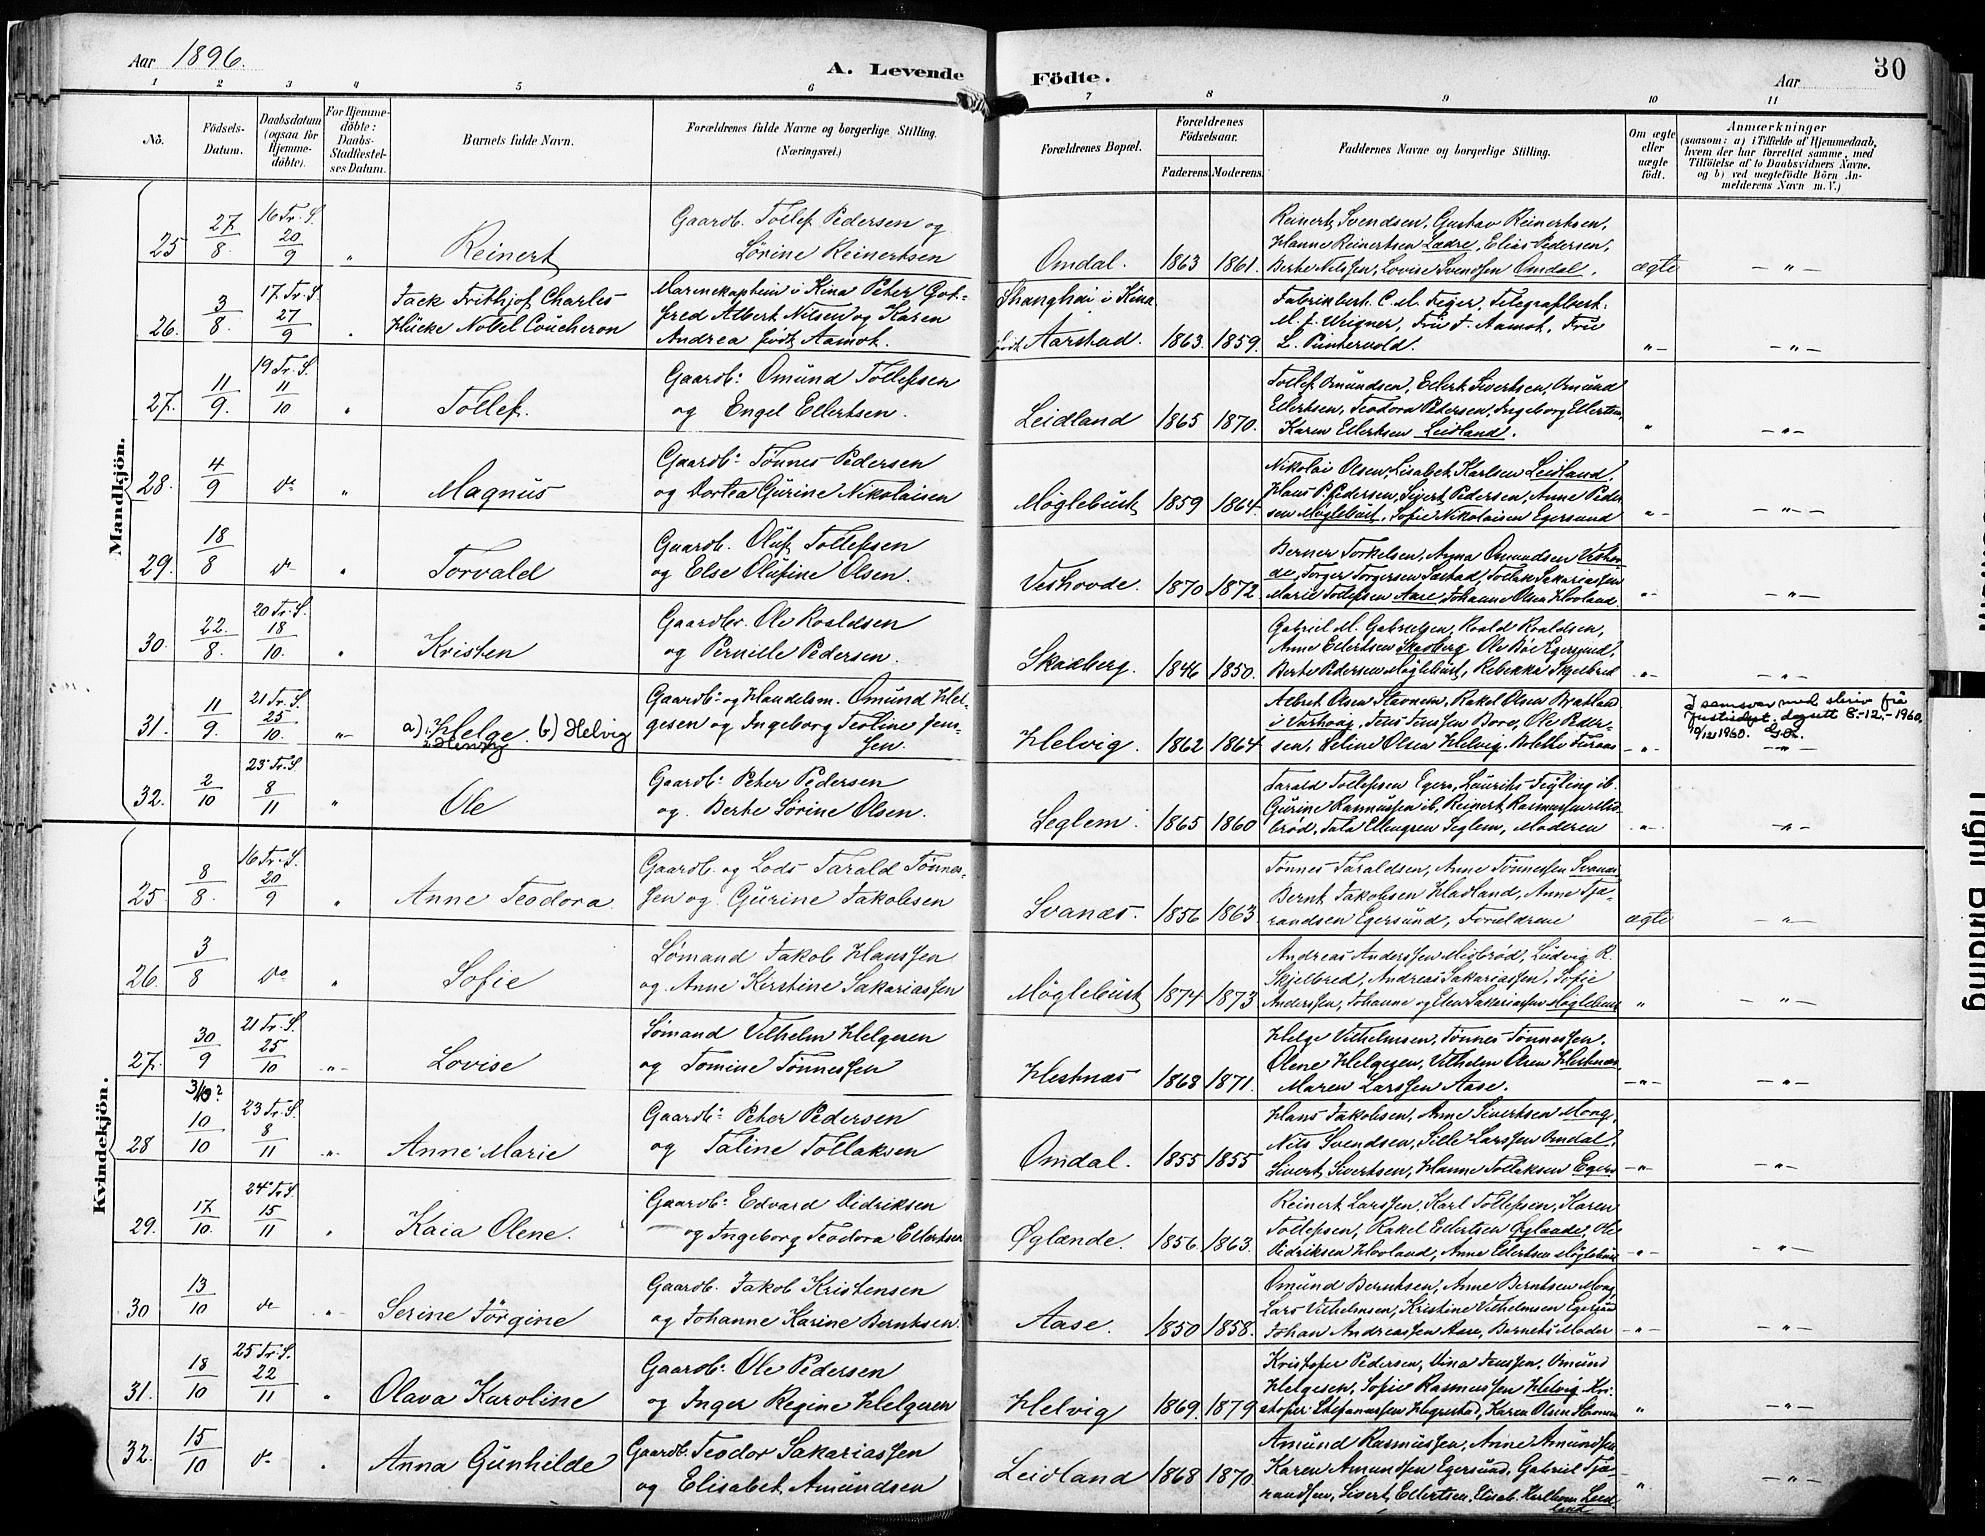 Aar 1896.
A. Levende Födte.
Aar
30
1 2 3 4 5 6 7 8 9 10 11
No.
Födsels-Datum.
Daabsdatum (ogsaa for Hjemmedöbte).
For Hjemmedöbte: Daabs-Stadfæstelses Datum.
Barnets fulde Navn.
Forældrenes fulde Navne og borgerlige Stilling. (Næringsvei.)
Forældrenes Bopæl.
Forældrenes Födselsaar.
Faderens. Moderens.
Faddernes Navne og borgerlige Stilling.
Om ægte eller uægte födt.
Anmærkninger
(saasom: a) i Tilfælde af Hjemmedaab, hvem der har forrettet samme, med Tilföielse af to Daabsvidners Navne. og b) ved uægtefödte Börn Anmelderens Navn m. V.)
Mandkjön.
25 27/8 16 Tr. S. 20/9 " Reinert
Gaardb. Tollef Pedersen og
Lørine Reinertsen
Omdal. 1863 1861.
Reinert Svendsen, Gustav Reinertsen,
Hanne Reinertsen Lædre, Elias Pedersen,
Berte Nilssen, Lovise Svendsen Omdal.
ægte — " —
26. 3/8. 17 Tr. S. 27/9 "
Jack Frithjof Charles
Hücke Nobel Coucheron
Marinekaptein i Kina Peter Got-
fred Albert Nilsen og Karen
Andrea født Aamot.
Shanghai i Kina
født Aarstad. 1863. 1859.
Fabrikbest. C. M. Feyer, Telegrafbest.
M. J. Weigner, Fru F. Aamot, Fru
L. Puntervold.
" — — " —
27. 11/9. 19 Tr. S. 11/10 " Tollef.
Gaardb: Omund Tollefsen
og Engel Eilertsen.
Leidland 1865 1870.
Tollef Omundsen, Eilert Sivertsen, Omund
Eilertsen, Teodora Pedersen, Ingeborg Eilertsen,
Karen Eilertsen Leidland.
" — " —
28. 4/9 do " Magnus
Gaardb: Tønnes Pedersen
og Dortea Gurine Nikolaisen
Møglebust 1859 1864.
Nikolai Olsen, Lisabet Karlsen Leidland,
Hans P. Pedersen, Sigert Pedersen, Anne Peder
sen Møglebust, Sofie Nikolaisen Egersund
" — — " —
29. 18/8 do " Torvald
Gaardb. Oluf Tollefsen
og Else Olufine Olsen.
Veshovde. 1870 1872.
Berner Torkelsen, Anna Omundsen Vesho
de, Torger Torgersen Sæstad, Tollak Sakariassen
Marie Tollefsen Aase, Johanne Olsen Hovland.
" — — " —
30. 22./8. 20 Tr. S. 18/10. " Kristen
Gaardbr. Ole Roaldsen
og Pernille Pedersen.
Skadberg. 1846 1850.
Gabriel M. Gabrielsen, Roald Roaldsen,
Anne Eilertsen Skadberg, Ole Bøe Egersund,
Berte Pedersen Møglebust, Rebekka Skjelbred
" — — " —
31. 11/9. 21 Tr. S. 25/10. " — a) 1. Helge. b) Helvig
2. Henvig
Gaardb: og Handelsm. Omund Hel-
gesen og Ingeborg Teoline Jens-
sen.
Helvig. 1862 1864.
Albert Olsen Stavnem, Rakel Olsen
i Varhaug, Jens Jenssen Boro, Ole Peder-
sen, Seline Olsen Helvig,
— " —
I samsvar med skriv frå
Justisdept. dagsett 8.-12.-1960.
10/12 1960.
— " —
32. 2/10 23 Tr. S. 8/11 " Ole
Gaardb: Peter Pedersen
og. Berte Sørine Olsen.
Seglem. 1865 1860
Tarald Tollefsen Egers, Laurits Tegling ib.
Gurine Rasmussen ib, Reinert Rasmussen Mid
brød, Tala Ellingsen Seglem, Moderen
. " — — " —
Kvindekjön.
25 8/8. 16 Tr. S. 20/9 " Anne Teodora.
Gaardb. og Lods Tarald Tønnes-
sen og. Gurine Jakobsen
Svanæs. 1856 1863.
Tønnes Taraldsen, Anne Tønnessen Svanæs
Bernt Jakobsen Hadland, Anne Tja-
randsen Egersund, Forældrene
ægte — " —
26. 3/8 do " Sofie
Sømand Jakob Hanssen
og Anne Kirstine Sakariassen
Møglebust 1874 1873
Andreas Anderssen Midbrød, Ludvig R.
Skjelbred, Andreas Sakariassen, Sofie
Anderssen, Johanne og Elen Sakariassen Møglebust,
" — " —
27. 30/9 21 Tr. S. 25/10 " — Lovise
Sømand Vilhelm Helgesen
og Tomine Tønnessen
Hestnæs 1868 1871.
Helge Vilhelmsen, Tønnes Tønnessen.
Olene Helgesen, Vilhelm Olsen Hestnæs
Maren Larssen Aase.
— " — — " —
28 3/10? 10/10 23 Tr. S. 8/11 " Anne Marie
Gaardb: Peter Pedersen
og Taline Tollaksen
Omdal. 1855 1855
Hans Jakobsen, Anne Sivertsen Mong,
Nils Svendsen, Sille Larssen Omdal,
Sivert Sivertsen, Hanne Tollaksen Egers
— " — — " —
29. 17/10. 24 Tr. S. 15/11 " Kaia Olene.
Gaardb: Edvard Didriksen
og Ingeborg Teodora Eilertsen
Øglænde. 1856. 1863.
Reinert Larssen, Karl Tollefsen, Karen
Tollefsen, Rakel Eilertsen Øglænde, Ole
Didriksen Hovland, Anne Eilertsen Møglebust
— " — — " —
30 13/10 do " Serine Jörgine
Gaardb. Jakob Kristensen
og Johanne Karine Berntsen.
Aase. 1850 1858.
Omund Berntsen, Anne Berntsen Mong,
Lars Vilhelmsen, Kristine Vilhelmsen Egersund
Johan Andreassen Aase, Barnets Moder
— " — — " —
31. 18/10 25 Tr. S. 22/11 " Olava Karoline
Gaardb: Ole Pedersen
og Inger Regine Helgesen
Helvig 1869. 1879
Kristofer Pedersen, Dina Jenssen, Omund
Helgesen, Sofie Rasmussen Helvig, Kri-
stofer Stefanussen Hegrestad, Karen Olsen
" — " —
32. 15/10 do " Anna Gunhilde
Gaardb. Teodor Sakariassen
og Elisabet Amundsen
Leidland 1868 1870.
Amund Rasmussen, Anne Amundsen
Karen Amundsen Egersund, Gabriel Tja-
randsen, Sivert Eilertsen, Elisab. Karlsen Leid-
land
" — " —
Tight Binding